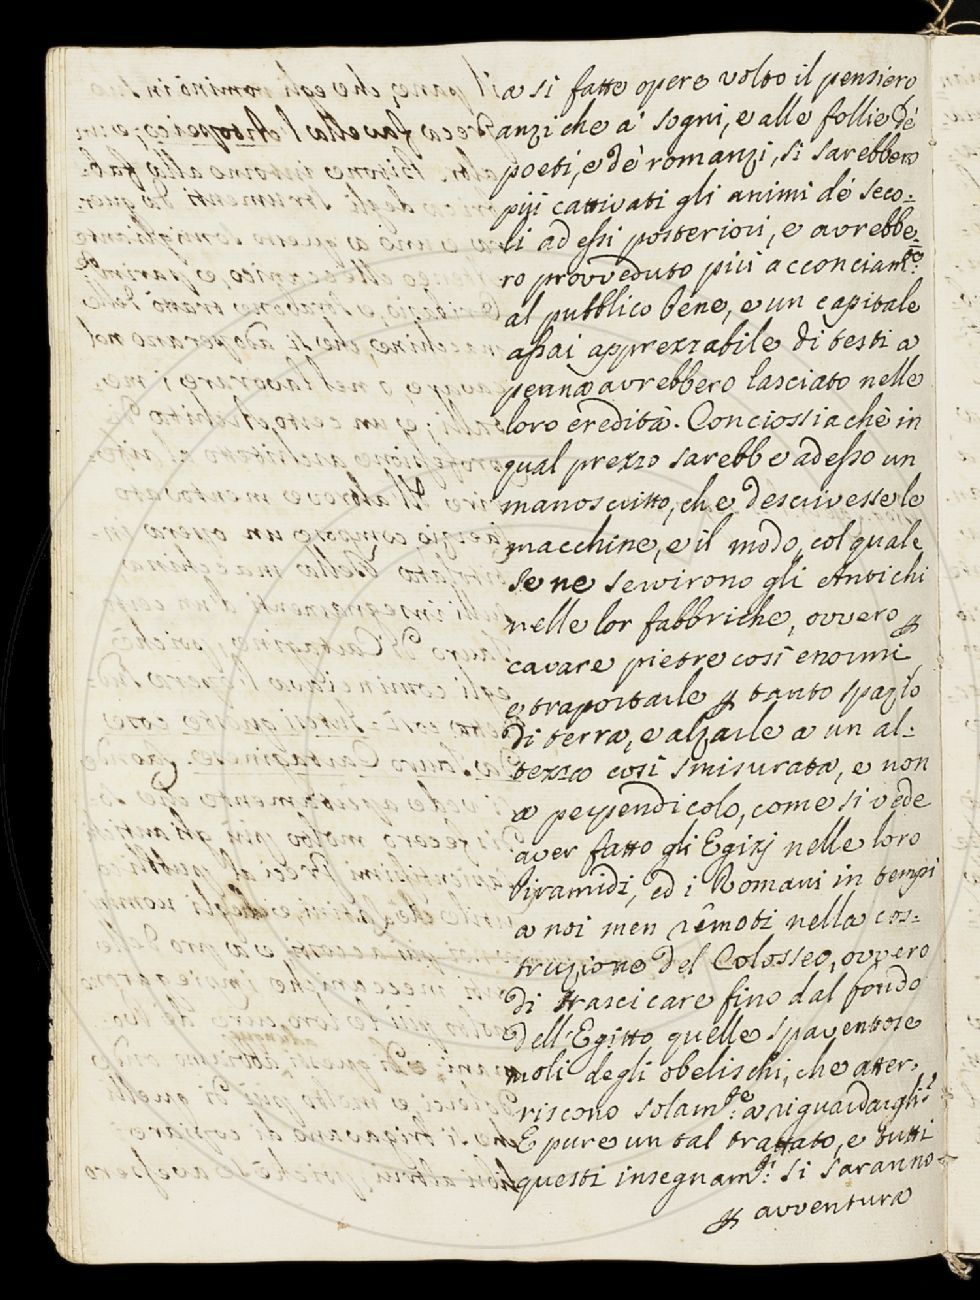 a sì fatte opere volto il pensiero,
anzi che a' sogni, e alle follie de'
poeti, e de' romanzi, si sarebbero
più cattivati gli animi de' seco-
li ad essi posteriori, e avrebbe-
ro provveduto più acconciam.te
al pubblico bene, e un capitale
assai apprezzabile di testi a
penna avrebbero lasciato nelle
loro eredità. Conciossiachè in
qual prezzo sarebbe adesso un
manoscritto, che descrivesse le
macchine, e il modo, col quale
se ne servirono gli Antichi
nelle lor fabbriche, ovvero ꝑ
cavare pietre così enormi,
e traportarle ꝑ tanto spazio
di terra, e alzarle a un al-
tezza così smisurata, e non
a perpendicolo, come si vede
aver fatto gli Egizj nelle loro
Piramidi, ed i Romani in tempi
a noi men remoti nella cos-
truzione del Colosseo, ovvero
di strascicare fino dal fondo
dell'Egitto quelle spaventose
moli degli obelischi, che atter-
riscono solam.te a riguardargli?
E pure un tal trattato, e tutti
questi insegnam.ti si saranno
ꝑ avventura